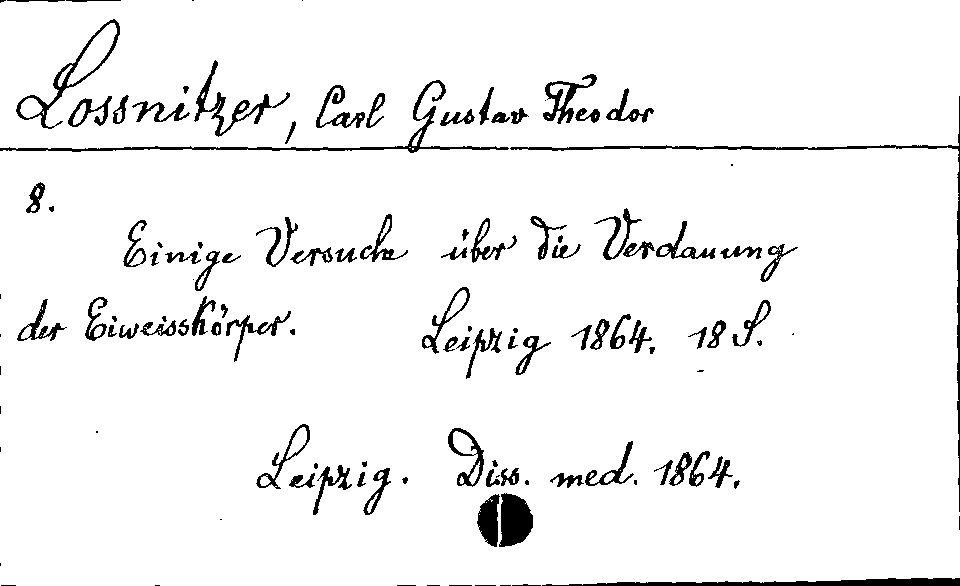 Lossnitzer, Carl Gustav Theodor
8.
Einige Versuche über die Verdauung
der Eiweisskörper. Leipzig 1864. 18 S.
Leipzig. Diss. med. 1864.